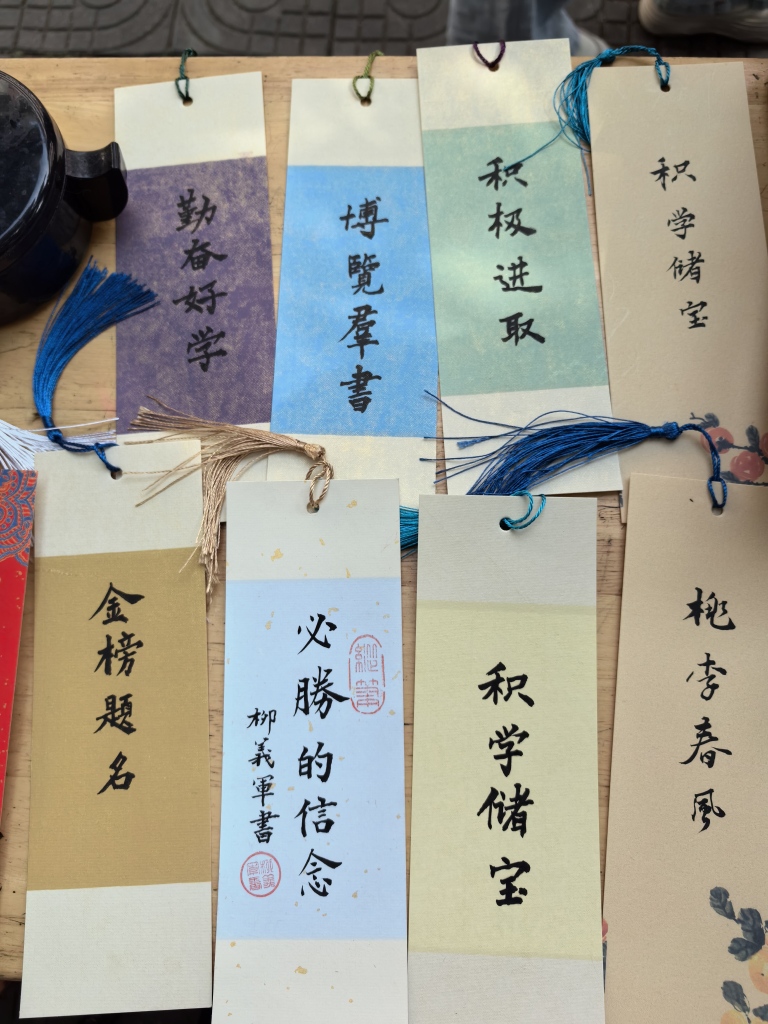 勤奋好学
博覽羣書
积极进取
积学储宝
金榜题名
必勝的信念
柳義軍書
积学储宝
桃李春风